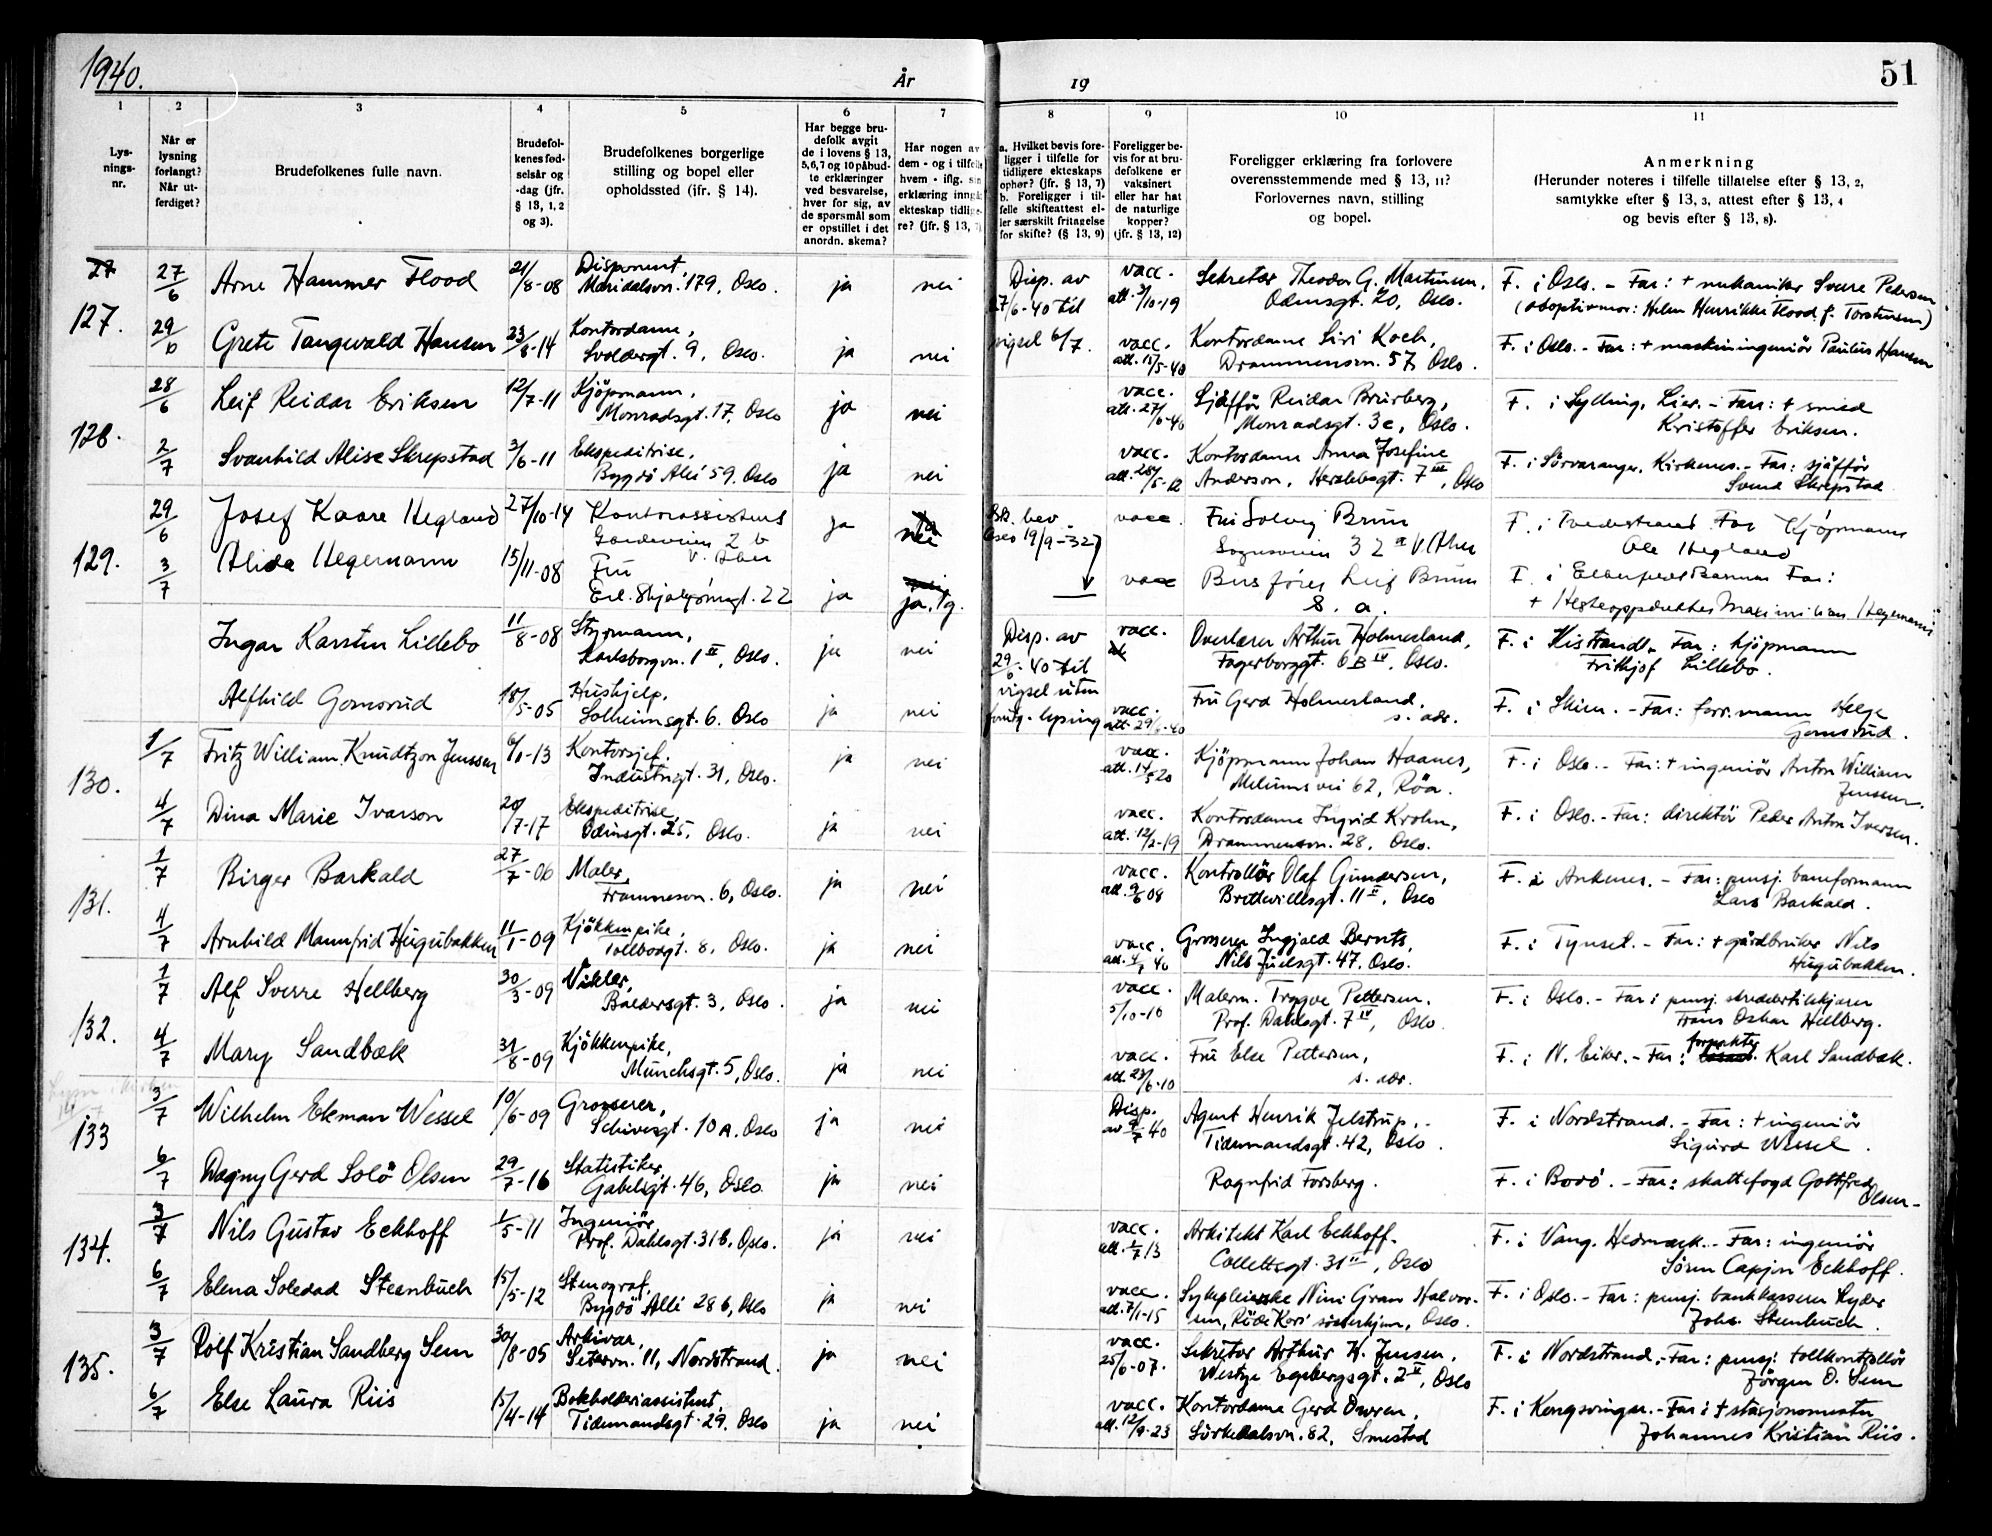 1940.
År
19
51
1
2
3
4
5
6
7
8
9
10
11
Lys-
nings-
nr.
Når er
lysning
forlangt?
Når ut-
ferdiget?
Brudefolkenes fulle navn.
Brudefol-
kenes fød-
selsår og
-dag (jfr.
§ 13, 1, 2
og 3).
Brudefolkenes borgerlige
stilling og bopel eller
opholdssted (jfr. § 14).
Har begge bru-
defolk avgit
de i lovens § 13,
5,6,7 og 10 påbud-
te erklæringer
ved besvarelse,
hver for sig, av
de spørsmål som
er opstillet i det
anordn. skema?
Har nogen av
dem - og i tilfelle
hvem - iflg. sin
erklæring inngå
ekteskap tidlige-
re? (jfr. § 13, 7)
a. Hvilket bevis fore-
ligger i tilfelle for
tidligere ekteskaps
ophør? (jfr. § 13, 7)
b. Foreligger i til-
felle skifteattest el-
ler særskilt fritagelse
for skifte? (§ 13, 9)
Foreligger be-
vis for at bru-
defolkene er
vaksinert
eller har hat
de naturlige
kopper?
(jfr. § 13, 12)
Foreligger erklæring fra forlovere
overensstemmende med § 13, 11?
Forlovernes navn, stilling
og bopel.
Anmerkning
(Herunder noteres i tilfelle tillatelse efter § 13, 2,
samtykke efter § 13, 3, attest efter § 13, 4
og bevis efter § 13, 8).
27
127.
27/6 Arne Hammer Flood 21/8-08 Disponent,
Maridalsvn. 179, Oslo. ja nei Disp. av
27/6-40 til
vigsel 6/7. vacc.
att. 3/10-19 Sekretær Theodor G. Martinsen,
Odinsgt. 20, Oslo. F. i Oslo. - Far: + mekaniker Sverre Pedersen
(adoptivmor: Helen Henrikke Flood f. Torstensen)
29/6 Grete Tangwald Hansen 23/8-14 Kontordame,
Svoldergt. 9, Oslo. ja nei vacc.
att. 15/5-40 Kontordame Siri Koch,
Drammensvn. 57, Oslo. F. i Oslo. - Far: + maskiningeniör Paulus Hansen
128.
28/6 Leif Reidar Eriksen 12/7-11 Kjöpmann,
Monradsgt. 17, Oslo ja nei vacc.
att. 27/6-40 Sjåfför Reidar Brurberg,
Monradsgt. 3c, Oslo. F. i Sylling, Lier. - Far: + smed
Kristoffer Eriksen.
2/7 Svanhild Alise Skrepstad 3/6-11 Ekspeditrise,
Bygdö Allé 59, Oslo ja nei vacc.
att. 28/5-12 Kontordame Anna Josefine
Anderson, Herslebsgt. 7 III, Oslo F. i Sörvaranger, Kirkenes. - Far: sjåfför
Svend Skrepstad
129.
29/6 Josef Kaare Hegland 27/10-14 Kontorassistent
2 b
V. Aker ja nei Sk. bev.
Oslo 19/9-32 vacc. Fru Solveig Brun
Sognsveien 32 a V. Aker F. i Tvedestrand Far Kjöpmann
Ole Hegland
3/7 Alida Hegermann 15/11-08 Fru
Erl. Skjalgsönsgt. 22 ja ja, 1 g. vacc Leif Brun
s. a. F. i Elberfeld Barmen Far:
+ Maximilian Hegermann
Ingar Karsten Lillebo 11/8-08 Styrmann,
Karlsborgvn. 1 II, Oslo. ja nei Disp. av
29/6-40 til
vigsel uten
forutg. lysing vacc.
Overlærer Arthur Holmesland,
Fagerborggt. 6 B IV, Oslo. F. i Kistrand. - Far: kjöpmann
Frithjof Lillebo.
Alfhild Gomsrud 18/5-05 Hushjelp,
Solheimsgt. 6. Oslo ja nei vacc.
att. 29/6-40 Fru Gerd Holmesland.
s. adr. F. i Skien. - Far: forr.mann Helge
Gomsrud.
130.
1/7 Fritz William Knudtzon Jenssen 6/1-13 Kontorsjef,
Industrigt. 31, Oslo. ja nei vacc.
att. 14/5 20 Kjöpmann Johan Haanes,
Melumsvei 62, Röa. F. i Oslo. - Far: + ingeniör Anton William
Jenssen.
4/7 Dina Marie Ivarson 20/7-17 Ekspeditrise,
Odinsgt. 25, Oslo. ja nei vacc.
att. 12/2-19 Kontordame Ingrid Krohn,
Drammensvn. 28, Oslo. F. i Oslo. - Far: direktör Peder Anton Iversen.
131.
1/7 Birger Barkald 27/7-06 Maler,
Framnesvn. 6, Oslo. ja nei vacc.
att. 9/6 08 Kontrollör Olaf Gundersen,
Bretteville sgt. 11 II, Oslo F. i Ankenes. - Far: pensj. baneformann
Lars Barkald.
4/7 Arnhild Mannfrid Hugubakken 11/1-09 Kjökkenpike,
Tollbodgt. 8, Oslo. ja nei vacc.
att. 4/1 40 Grosserer Ingjald Bernts,
Nils Juelsgt. 47, Oslo. F. i Tynset. - Far: + gårdbruker Nils
Hugubakken.
132.
1/7 Alf Sverre Hellberg 30/3-09 Vikler,
Baldersgt. 3, Oslo. ja nei vacc.
5/10-10 Malerm. Trygve Pettersen,
Prof. Dahlsgt. 7 IV, Oslo. F. i Oslo. - Far: pensj. skreddertilskjærer
Frans Oskar Hellberg.
4/7 Mary Sandbæk 31/8-09 Kjökkenpike,
Munchsgt. 5, Oslo. ja nei vacc.
att. 23/6-10 Fru Else Pettersen,
s. adr. F. i N. Eiker. - Far: forpakter Karl Sandbæk.
133
3/7 Wilhelm Ekman Wessel 10/6-09 Grosserer,
Schivesgt. 10 A, Oslo ja nei Disp.
av 9/7 40 Agent Henrik Jelstrup,
Tidemandsgt. 42, Oslo. F. i Nordstrand. - Far: + ingeniör
Sigurd Wessel.
6/7 Dagny Gerd Solö Olsen 29/7-16 Statistiker,
Gabelsgt. 46, Oslo. ja nei Ragnfrid Forsberg. F. i Bodö. - Far: skattefogd Gottfred
Olsen -
134.
3/7 Nils Gustav Eckhoff 1/5-11 Ingeniör,
Prof. Dahlsgt. 31 b, Oslo. ja nei vacc.
att. 1/7 13 Arkitekt Karl Eckhoff.
Collettsgt. 31 II, Oslo F. i Vang, Hedmark. - Far: ingeniör
Sören Capjon Eckhoff.
6/7 Elena Soledad Steenbuch 15/5-12 Stenograf,
Bygdö Allé 28 b, Oslo ja nei vacc.
att. 7/1-15 Sykepleierske Nini Gran Halvor-
sen, Röde Kors' Oslo. F. i Oslo. - Far: pensj. bankkasserer Lyder
Johs. Steenbuch.
135.
3/7 Rolf Kristian Sandberg Sem 30/8-05 Arkivar,
Setervn. 11, Nordstrand. ja nei vacc.
25/6-07. Sekretær Arthur H. Jensen,
Westye Egebergsgt. 2 II, Oslo F. i Nordstrand. - Far: pensj. tollkontrollör
Jörgen O. Sem
6/7 Else Laura Riis 15/4-14 Bokholderiassistent,
Tidemandsgt. 29, Oslo ja nei vacc.
att. 12/9-23 Kontordame Gerd Owren,
Sörkedalsvn. 82, Smestad F. i Kongsvinger. - Far: + stasjonsmester
Johannes Kristian Riis.